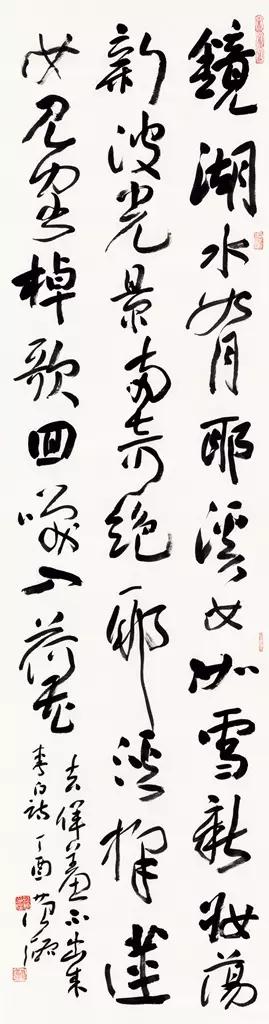 鏡湖水如月耶溪女如雪新妝蕩
新波光景兩奇絕耶溪採蓮
女見客棹歌回咲入荷花
去佯羞不出來
李白詩丁酉